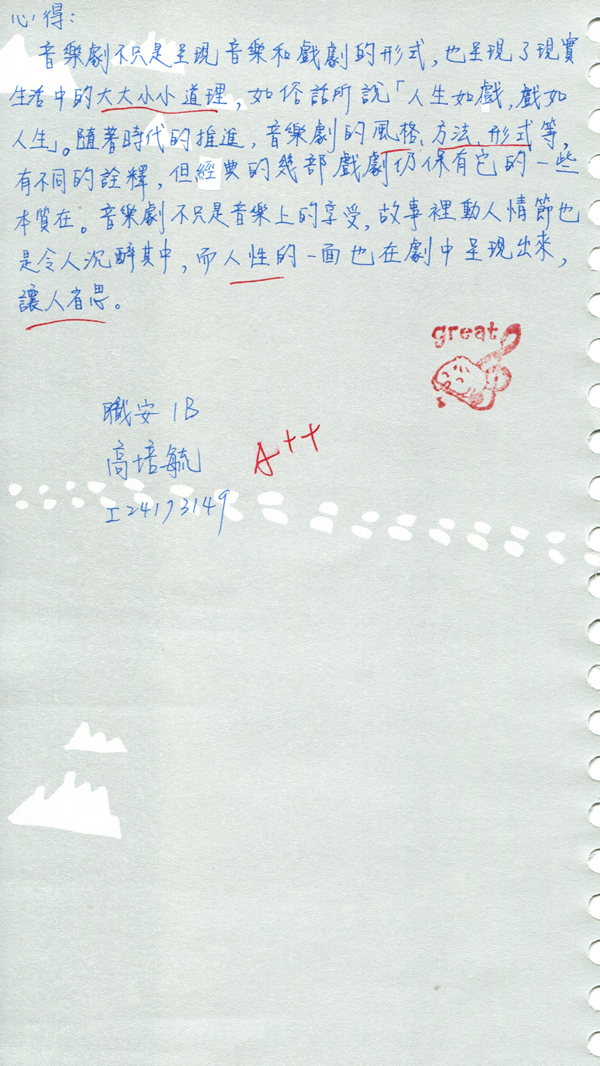 心得:
音樂劇不只是呈現音樂和戲劇的形式,也呈現了現實
生活中的大大小小道理,如俗話所說「人生如戲,戲如
人生」。隨著時代的推進,音樂劇的風格、方法、形式等,
有不同的詮釋,但經典的幾部戲劇仍保有它的一些
本質在。音樂劇不只是音樂上的享受,故事裡動人情節也
是令人沉醉其中,而人性的一面也在劇中呈現出來,
讓人省思。
great
職安1B
高培毓
A++
I24173149